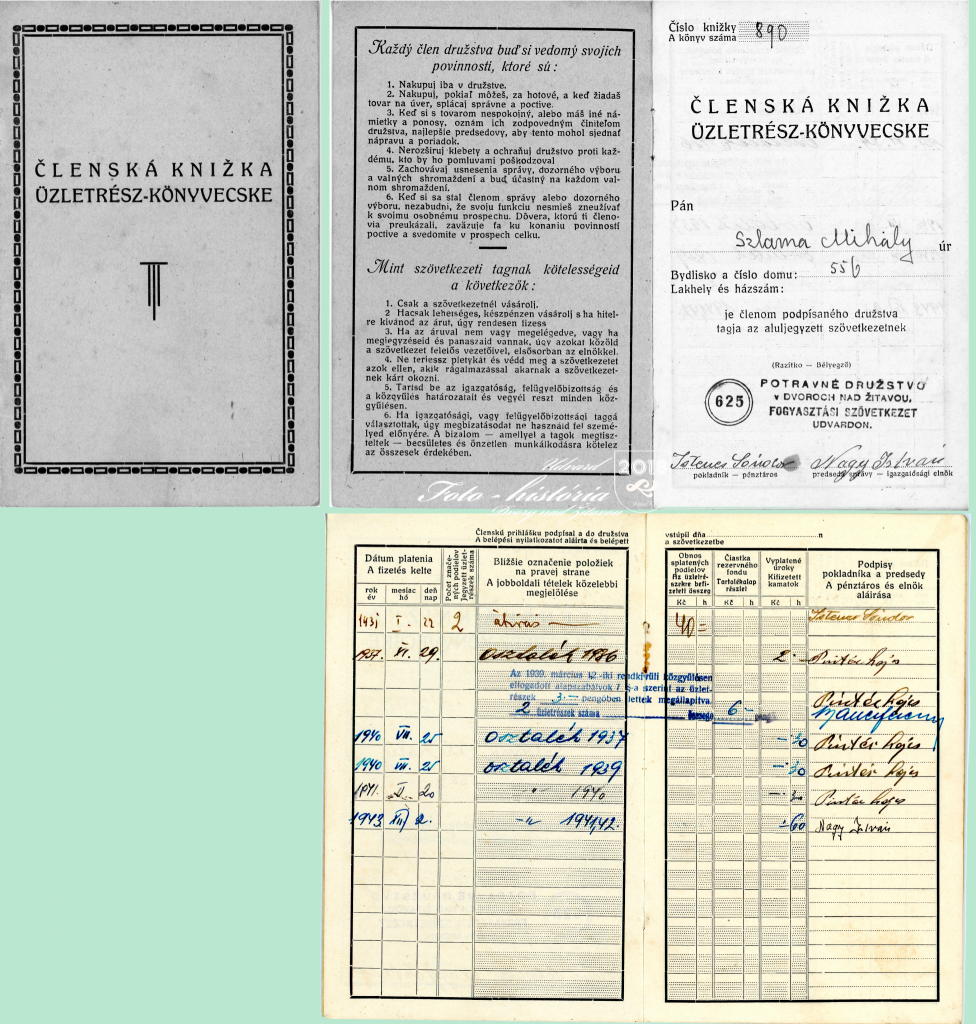 ČLENSKÁ KNIŽKA
ÜZLETRÉSZ-KÖNYVECSKE
Každý člen družstva buď si vedomý svojich
povinností, ktoré sú:
1. Nakupuj iba v družstve.
2. Nakupuj, pokiaľ môžeš, za hotové, a keď žiadaš
tovar na úver, splácaj správne a poctive.
3. Keď si s tovarom nespokojný, alebo máš iné ná-
mietky a ponosy, oznám ich zodpovedným činiteľom
družstva, najlepšie predsedovy, aby tento mohol sjednať
nápravu a poriadok.
4. Nerozširuj klebety a ochraňuj družstvo proti kaž-
dému, kto by ho pomluvami poškodzoval
5. Zachovávaj usnesenia správy, dozorného výboru
a valných shromaždení a buď účastný na každom val-
nom shromaždení.
6. Keď si sa stal členom správy alebo dozorného
výboru, nezabudni, že svoju funkciu nesmieš zneužívať
k svojmu osobnému prospechu. Dôvera, ktorú ti členo-
via preukázali, zaväzuje ťa ku konaniu povinností
poctive a svedomite v prospech celku.
Mint szövetkezeti tagnak kötelességeid
a következők:
1. Csak a szövetkezetnél vásárolj.
2 Hacsak lehetséges, készpénzen vásárolj s ha hitel-
re kivánod az árut, úgy rendesen fizess
3. Ha az áruval nem vagy megelégedve, vagy ha
megjegyzéseid és panaszaid vannak, úgy azokat közöld
a szövetkezet felelős vezetőivel, elsősorban az elnökkel.
4. Ne terjessz pletykát és védd meg a szövetkezetet
azok ellen, akik rágalmazással akarnak a szövetkezet-
nek kárt okozni.
5. Tartsd be az igazgatóság, felügyelőbizottság és
a közgyűlés határozatait és vegyél reszt minden köz-
gyűlésen.
6. Ha igazgatósági, vagy felügyelőbizottsági taggá
választottak, úgy megbizatásodat ne használd fel szemé-
lyed előnyére. A bizalom — amellyel a tagok megtisz-
teltek — becsületes és önzetlen munkálkodásra kötelez
az összesek érdekében.
Číslo knižky
A könyv száma
890
ČLENSKÁ KNIŽKA
ÜZLETRÉSZ-KÖNYVECSKE
Pán
Szlama Mihály úr
Bydlisko a číslo domu: 556
Lakhely és házszám:
je členom podpísaného družstva
tagja az aluljegyzett szövetkezetnek
(Razítko — Bélyegző)
625
POTRAVNÉ DRUŽSTVO
v DVOROCH NAD ŽITAVOU,
FOGYASZTÁSI SZÖVETKEZET
UDVARDON.
Istenes Sándor Nagy István
pokladník — pénztáros predseda správy — igazgatósági elnök
Udvard
Foto - história
Členskú prihlášku podpísal a do družstva
A belépési nyilatkozatot aláírta és belépett
vstúpil dňa n
a szövetkezetbe
Dátum platenia
A fizetés kelte
rok mesiac deň
év hó nap
Počet znače-
ných podielov
Jegyzett üzlet-
részek száma
Bližšie označenie položiek
na pravej strane
A jobboldali tételek közelebbi
megjelölése
Obnos
splatených
podielov
Az üzletré-
szekre befi-
zetett összeg
Kč h
Čiastka
rezervného
fondu
Tartalékalap
részlet
Kč h
Vyplatené
úroky
Kifizetett
kamatok
Kč h
Podpisy
pokladníka a predsedy
A pénztáros és elnök
aláírása
1931 I. 22 2 átirás — 40= Istenes Sándor
1937. VI. 29. osztalék 1936 2 -
Az 1939. március 12.-iki rendkívüli közgyűlésen
elfogadott alapszabályok 7 §-a szerint az üzlet-
részek 3.— pengőben lettek megállapítva.
2 üzletrészek száma összege 6 - pengő
1940 VII. 25 osztalék 1937 - 30
1940 VII. 25 osztalék 1939 - 30
1941. 20 -„- 1940
1943 XII 2. -„- 1941,42. - 60 Nagy István